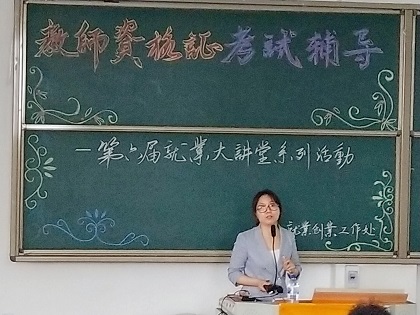 教师資格証考試辅导
一第六届就業大講堂系列活動
就業創業工作处